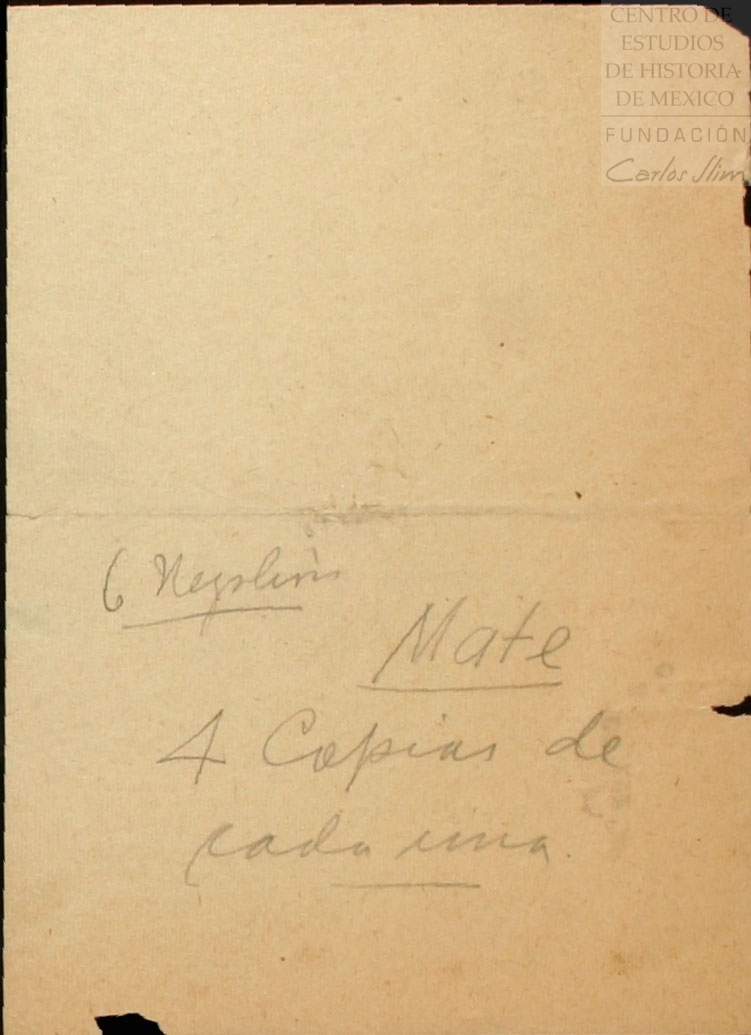 CENTRO DE
ESTUDIOS
DE HISTORIA
DE MEXICO
FUNDACIÓN
Carlos Slim
6
Mate
4 Copias de
cada una